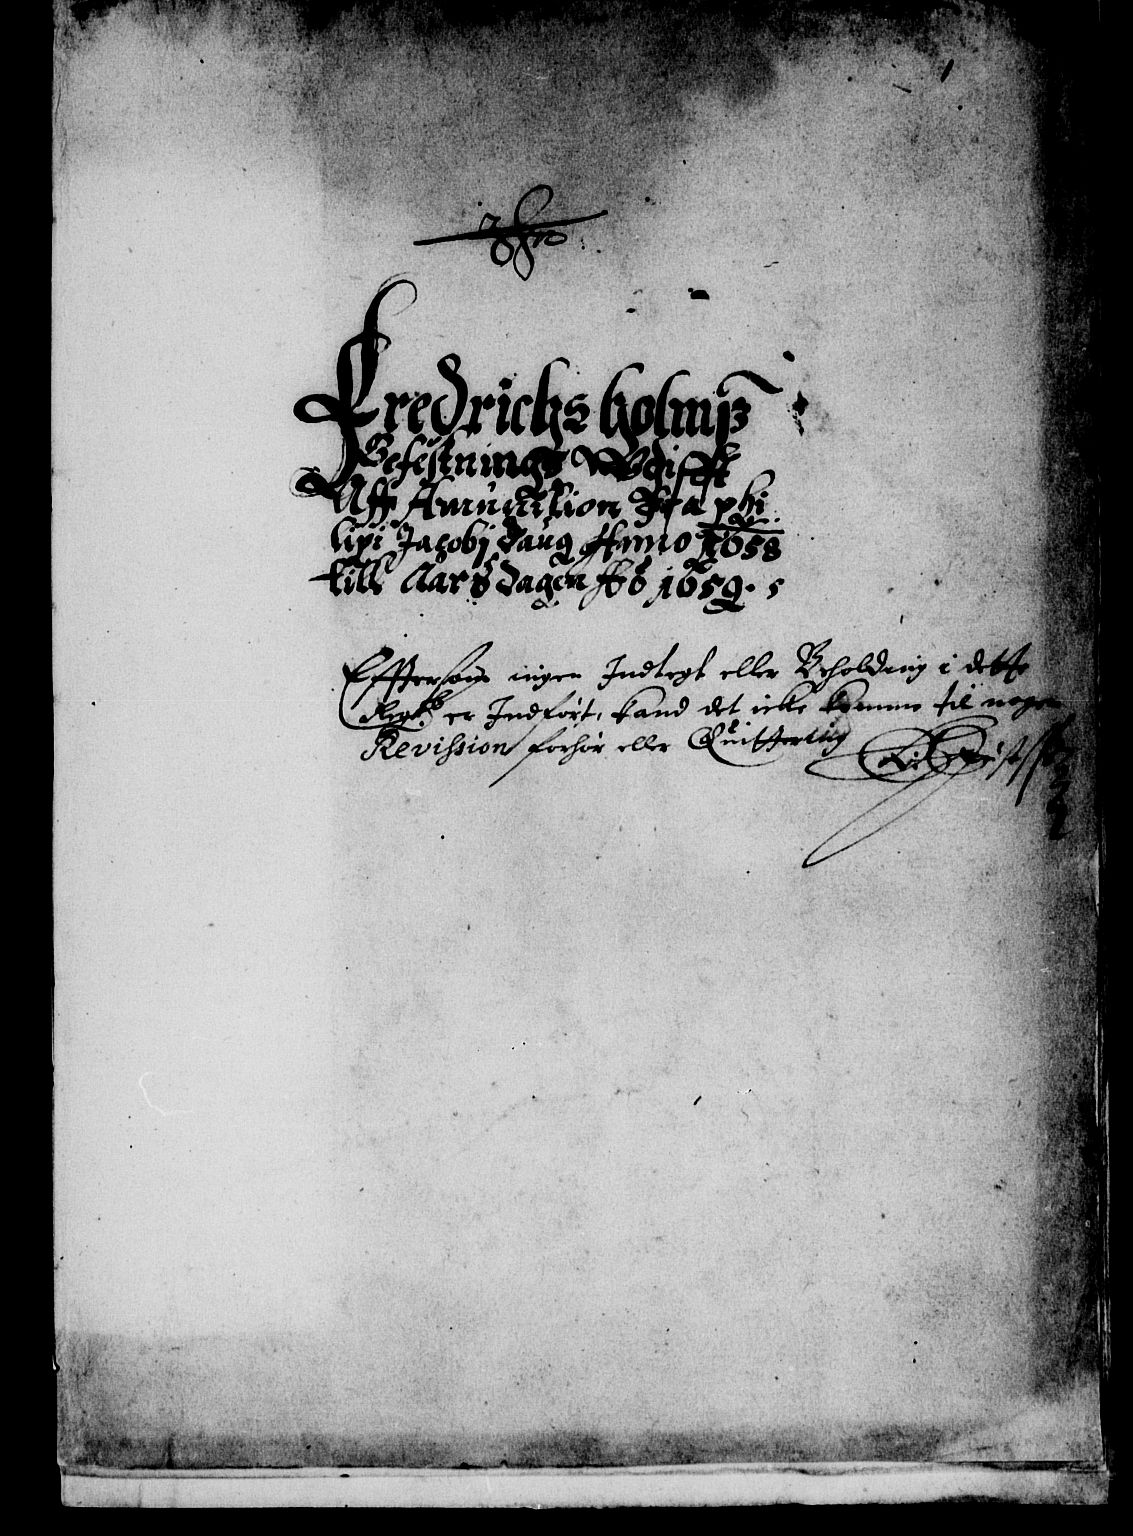 Fredrichs holmß
Befestnings Wdgifft
Aff Amunition Fra phi
lipi Jacobj daug Anno 1658
till Aarß dagen Ao 1659.
Effterson ingen Indtegt eller Beholdning i dette
Regsk: er Indført, kand det icke komme til nogen
Revission forhør eller Quittering